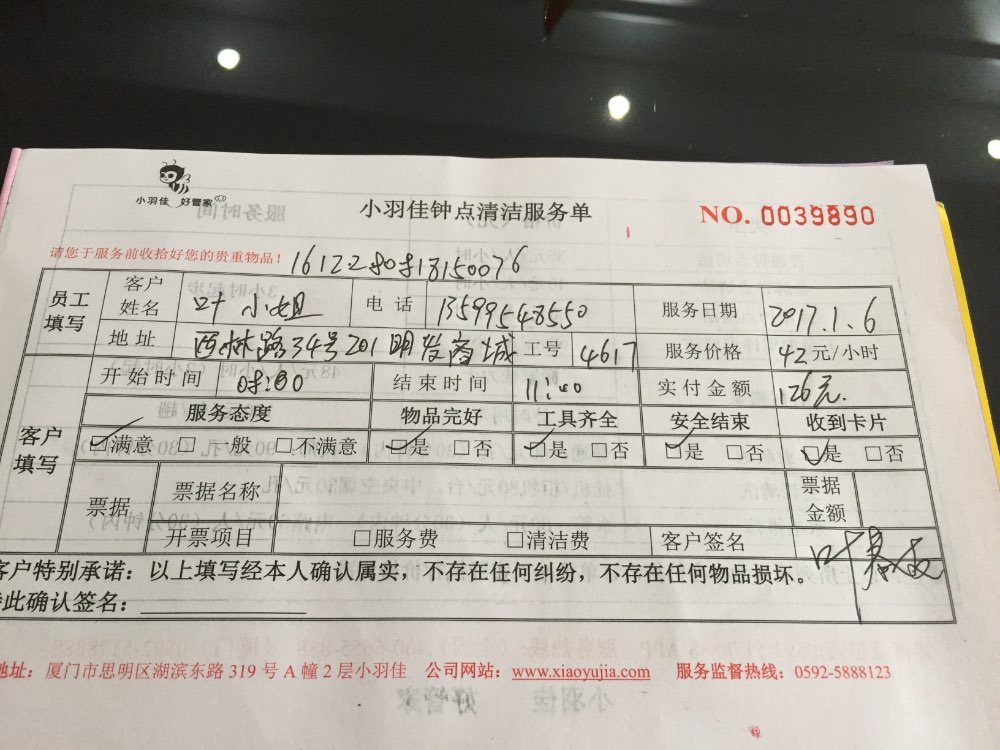 小羽佳 好管家
小羽佳钟点清洁服务单
NO. 0039890
请您于服务前收拾好您的贵重物品!
员工填写 客户姓名 叶小姐 电话 13599548550 服务日期 2017.1.6
地址 西林路34号201明发商城 工号 4617 服务价格 42元/小时
开始时间 结束时间 11:00 实付金额 126元.
客户填写 服务态度 物品完好 工具齐全 安全结束 收到卡片
☑满意 □一般 □不满意 ☑是 □否 ☑是 □否 ☑是 □否 ☑是 □否
票据 票据名称 票据金额
开票项目 □服务费 □清洁费 客户签名
客户特别承诺:以上填写经本人确认属实,不存在任何纠纷,不存在任何物品损坏。
此确认签名:
地址:厦门市思明区湖滨东路 319 号 A 幢 2 层小羽佳 公司网站:www.xiaoyujia.com 服务监督热线:0592-5888123
小羽佳 好管家